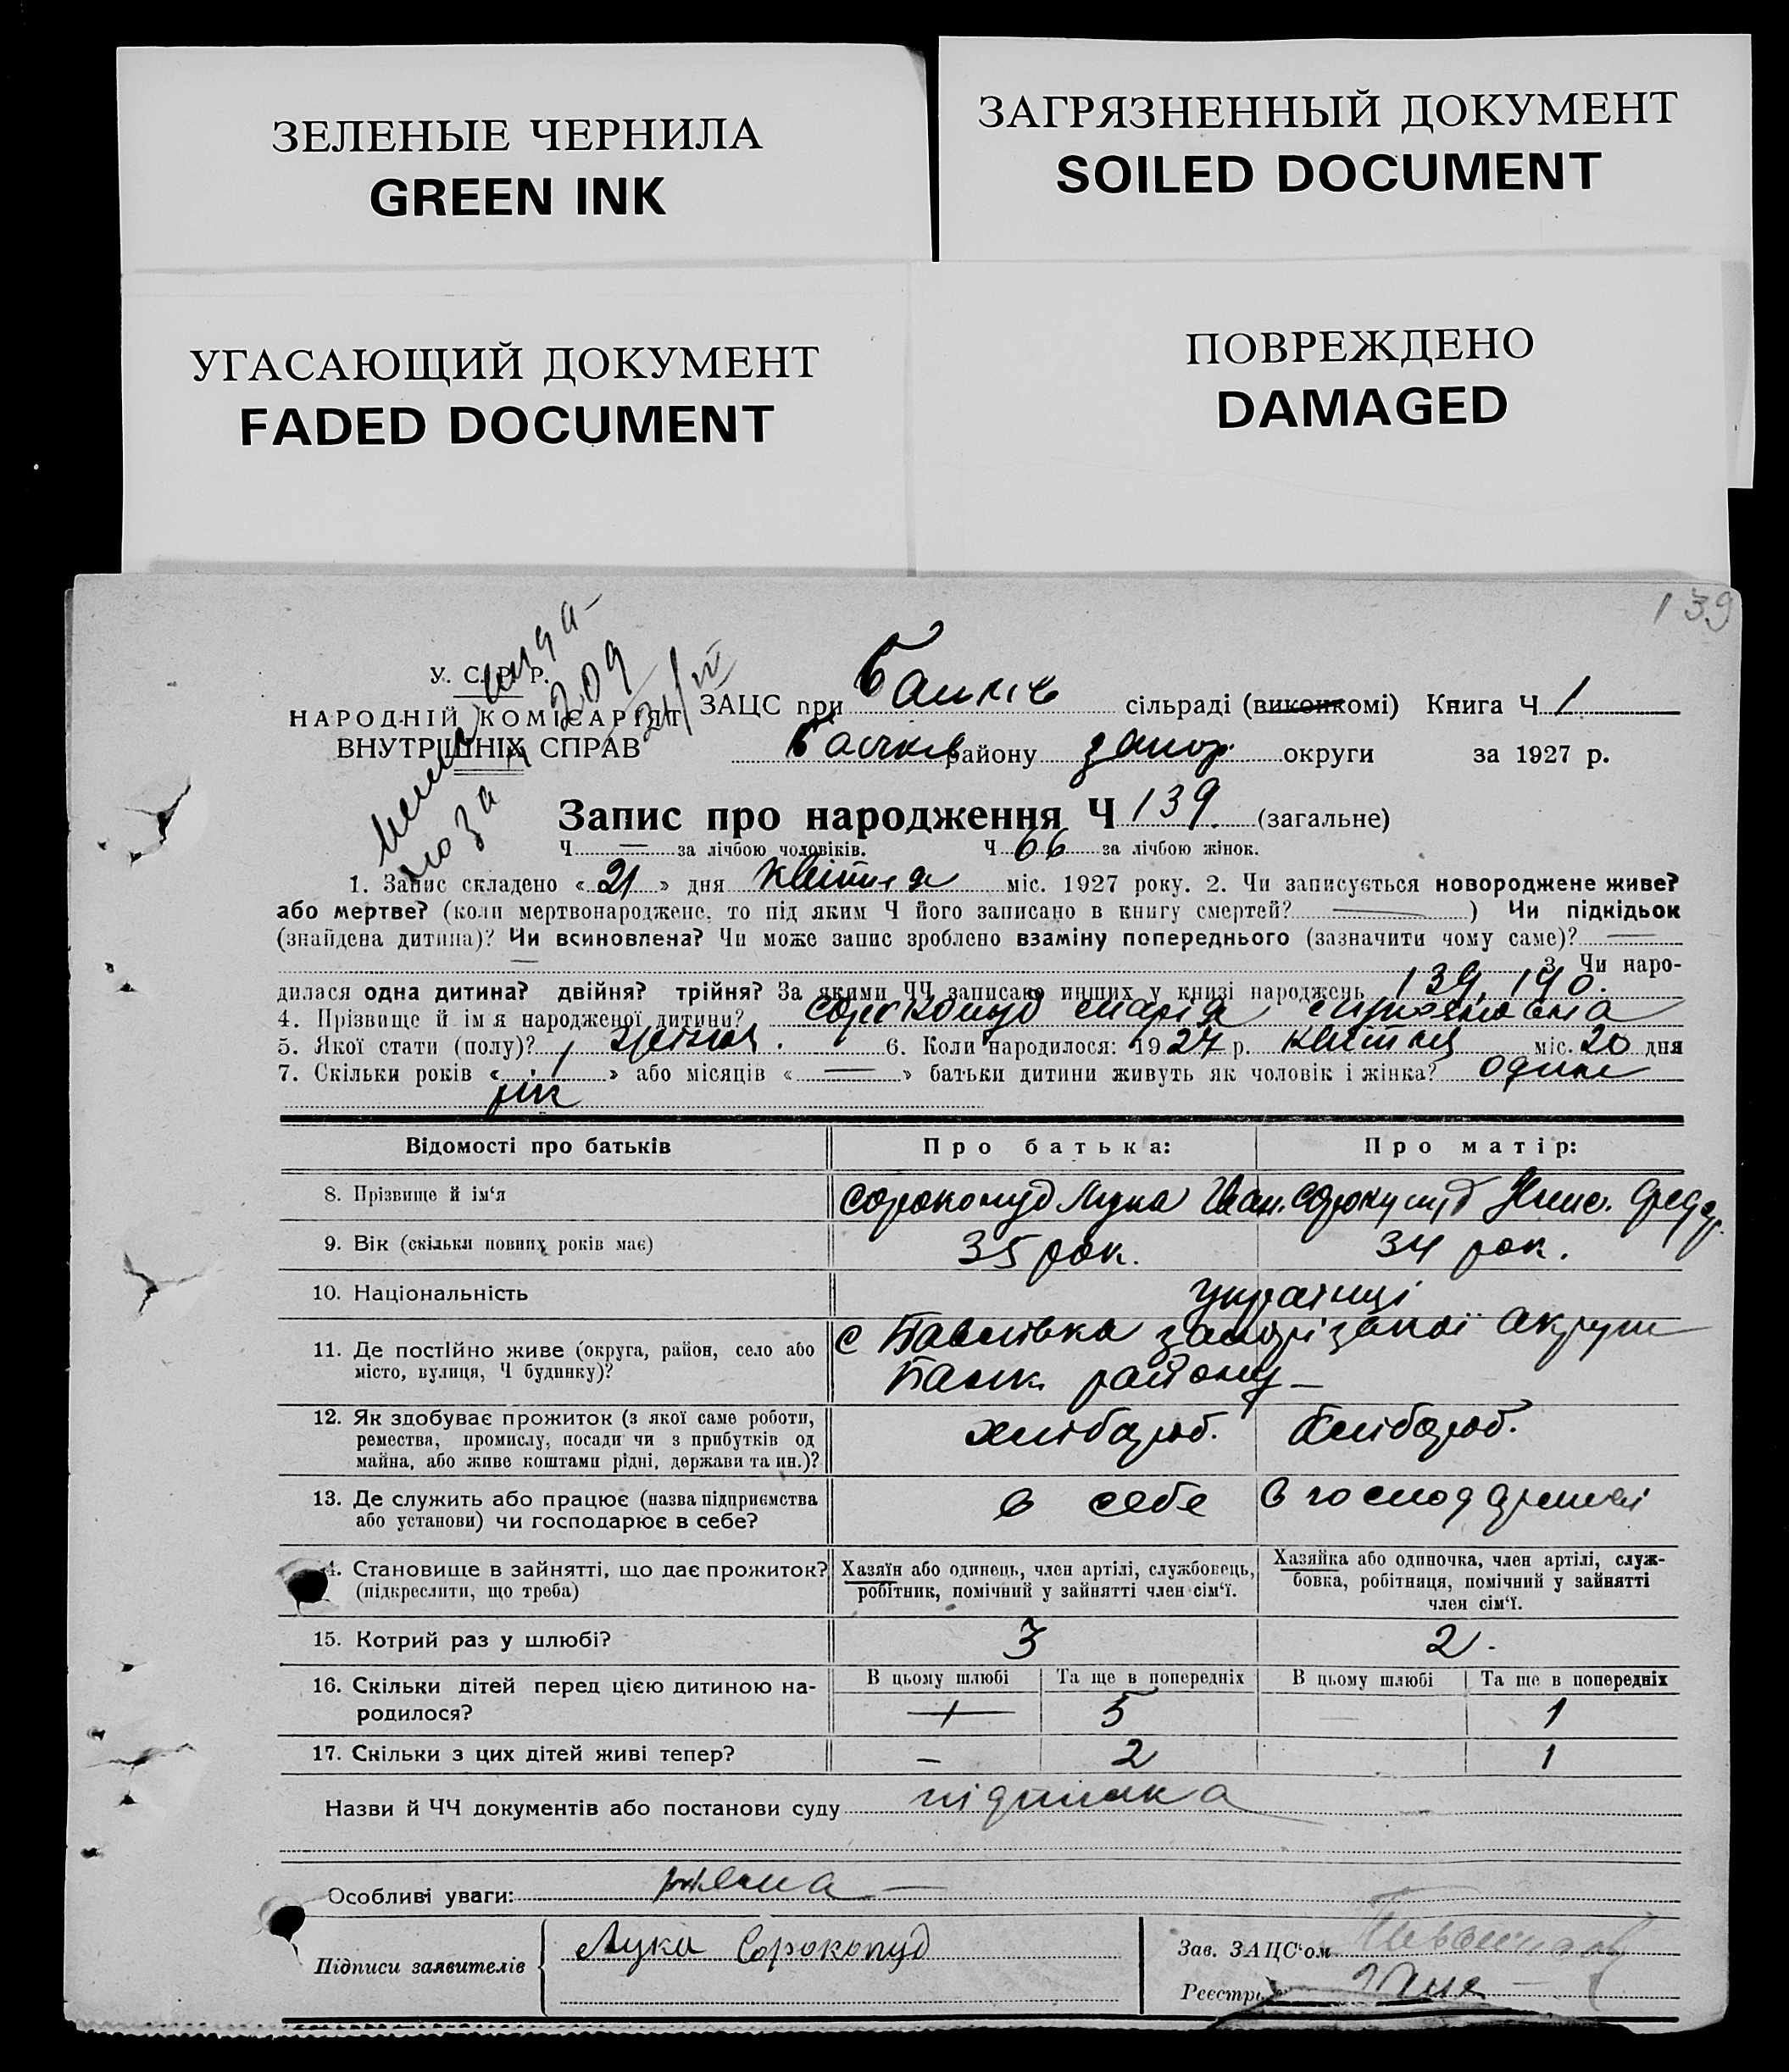 ЗЕЛЕНЫЕ ЧЕРНИЛА
GREEN INK
ЗАГРЯЗНЕННЫЙ ДОКУМЕНТ
SOILED DOCUMENT
УГАСАЮЩИЙ ДОКУМЕНТ
FADED DOCUMENT
ПОВРЕЖДЕНО
DAMAGED
139
У. С. Р. Р.
НАРОДНІЙ КОМІСАРІЯТ
ВНУТРІШНІХ СПРАВ
за 209
21/IV
ЗАЦС при сільраді (виконкомі) Книга Ч 1
району запор. округи за 1927 р.
Запис про народження Ч 139 (загальне)
Ч — за лічбою чоловіків. Ч 66 за лічбою жінок.
1. Запис складено « 21 » дня квітня міс. 1927 року. 2. Чи записується новороджене живе?
або мертве? (коли мертвонароджене, то під яким Ч його записано в книгу смертей? — ) Чи підкідьок
(знайдена дитина)? Чи всиновлена? Чи може запис зроблено взаміну попереднього (зазначити чому саме)? —
— 3. Чи наро-
дилася одна дитина? двійня? трійня? За якими ЧЧ записано инших у книзі народжень 139, 140.
4. Прізвище й ім'я народженої дитини? Сорокопуд Марія
5. Якої стати (полу)? жіноч. 6. Коли народилося: 1927 р. квітня міс. 20 дня
7. Скільки років « 1 » або місяців « — » батьки дитини живуть як чоловік і жінка? один
рік
Відомості про батьків Про батька: Про матір:
8. Прізвище й ім'я Сорокопуд Лука Іван. Сорокопуд
9. Вік (скільки повних років має) 35 рок. 34 рок.
10. Національність українці
11. Де постійно живе (округа, район, село або місто, вулиця, Ч будинку)? с Павлівка запорізької округи
район
12. Як здобуває прожиток (з якої саме роботи, ремества, промислу, посади чи з прибутків од майна, або живе коштами рідні, держави та ин.)? хлібороб. хлібороб.
13. Де служить або працює (назва підприємства або установи) чи господарює в себе? в себе в господарстві
14. Становище в зайнятті, що дає прожиток? (підкреслити, що треба) Хазяїн або одинець, член артілі, службовець, робітник, помічний у зайнятті член сім'ї. Хазяйка або одиночка, член артілі, служ-бовка, робітниця, помічний у зайнятті член сім'ї.
15. Котрий раз у шлюбі? 3 2.
В цьому шлюбі Та ще в попередніх В цьому шлюбі Та ще в попередніх
16. Скільки дітей перед цією дитиною на-родилося? 1 5 — 1
17. Скільки з цих дітей живі тепер? – 2 1
Назви й ЧЧ документів або постанови суду
Особливі уваги: нема —
Підписи заявителів Лука Сорокопуд
Зав. ЗАЦС'ом
Реєстр